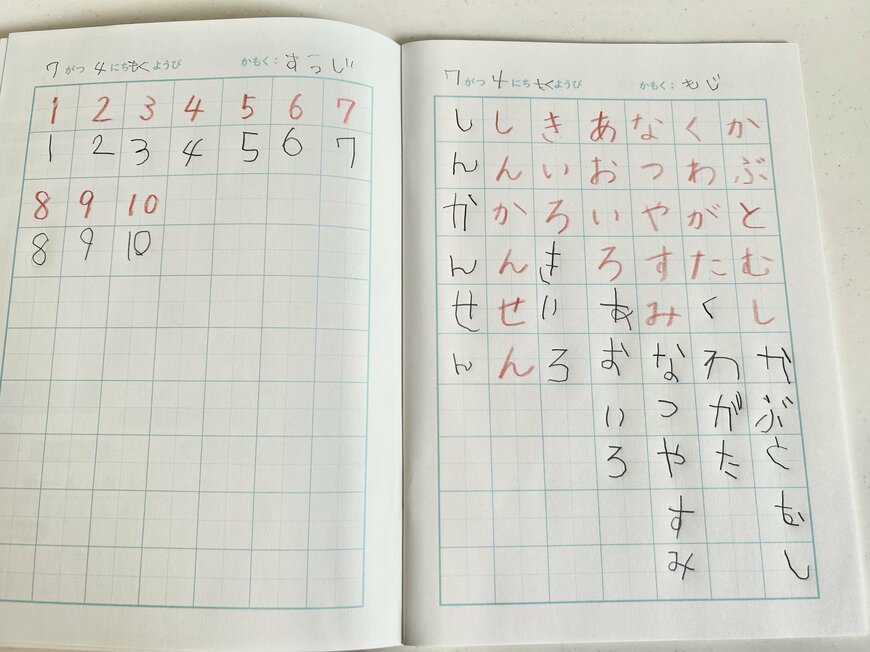 7がつ 4にち もくようび かもく：すうじ
1 2 3 4 5 6 7
1 2 3 4 5 6 7
8 9 10
8 9 10
7がつ 4にち もくようび かもく：もじ
かぶとむしかぶとむし
くわがたくわがた
なつやすみなつやすみ
あおいろあおいろ
きいろきいろ
しんかんせん
しんかんせん